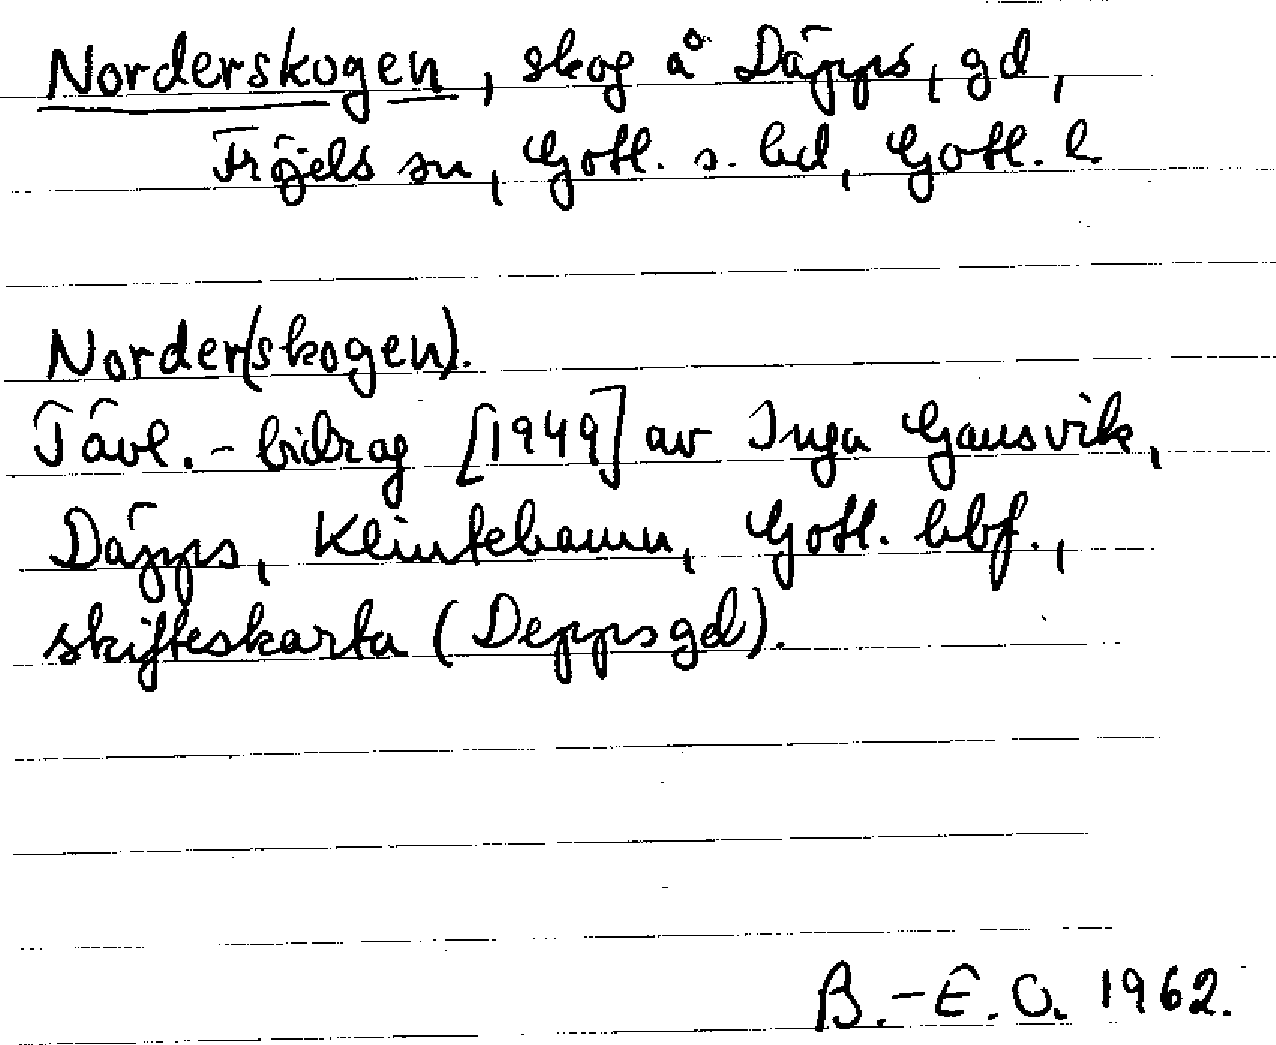 Norderskogen, skog å Däpps, gd,
Fröjels sn, Gotl. s. hd, Gotl. l.
Norder(skogen).
Tävl.-bidrag [1949] av Inga Gansvik,
Däpps, Klintehamn, Gotl. hbf.,
skifteskarta (Deppsgd).
B.-E. O. 1962.